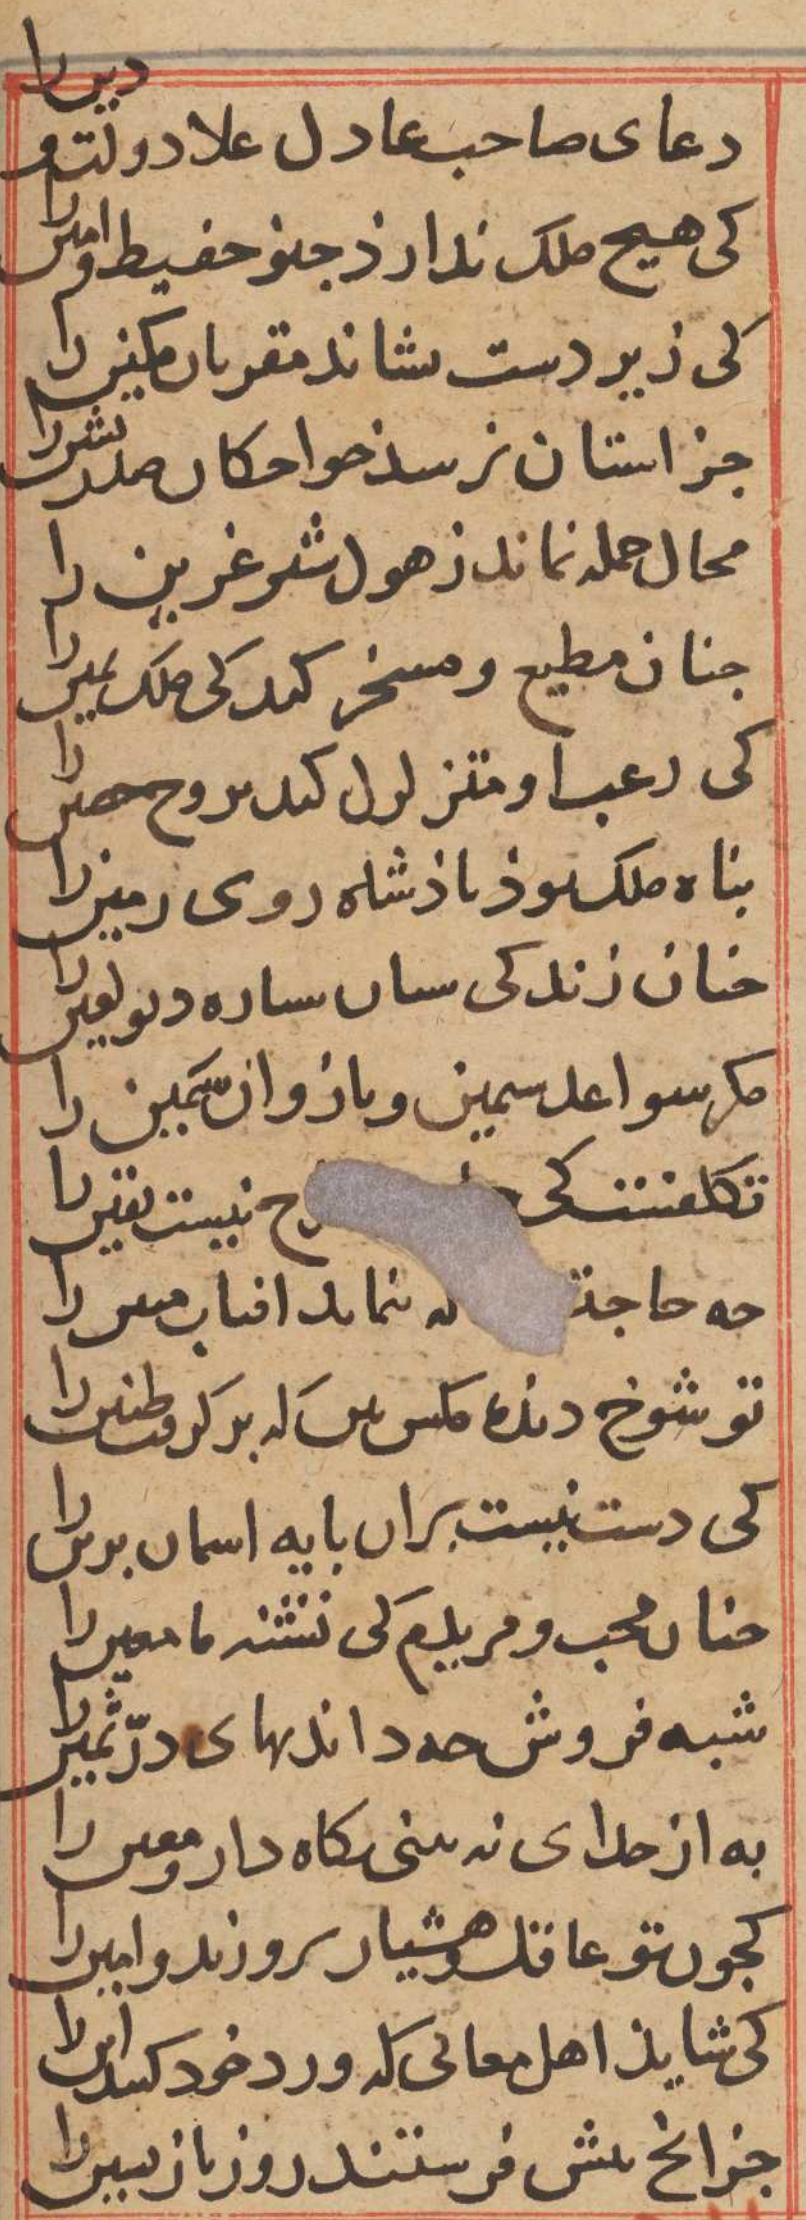 دعای صاحب عادل علا دولت و دین را
کی هیچ ملک ندارذ جنو حفیظ و امین را
کی زیر دست نشاند مقربان مکین را
جز استان نرسذ خواجکان صدرنشین را
محال حمله نماند ز هول شیر غرین را
جنان مطیع و مسخر کند کی ملک یمین را
کی رعب او متزلزل کند بروج حصین را
بناه ملک بوذ باذشاه روی زمین را
جنان زند کی سنان ستاره دیو لعین را
مکر سواعد سیمین و بازوان سمین را
تکلفست کی نیست یقین را
جه حاجت که نماید افتاب مبین را
تو شوخ دیذه مکس بین که بر کرفت طنین را
کی دست نیست بران بایه اسمان برین را
جنان محب و مریدم کی تشنه ما معین را
شبه فروش جه داند بهای درّ ثمین را
به از خدای نه بینی نکاه دار و معین را
کجون تو عاقل و هشیار برورند و امین را
کی شاید اهل معانی که ورد خود کند این را
جز انج بیش فرستند روز باز بسین را